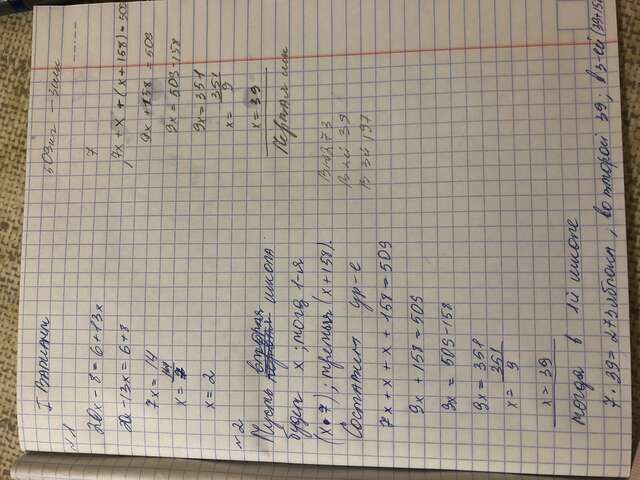 I Вариант
№1
20x - 8 = 6 + 13x
20x - 13x = 6 + 8
7x = 14
x = 14/7
x = 2
№2
Пусть вторая школа
будет x; тогда 1-я
(x•7); третья (x+158).
Составим ур-е
7x + x + x + 158 = 509
9x + 158 = 509
9x = 509 - 158
9x = 351
x = 351/9
x = 39
тогда в 1й школе
7·39 = 273 яблонь, во второй 39; в 3-ей (39+158
509 кг - 3 шк
7
7x + x + (x + 158) = 509
9x + 158 = 509
9x = 509 - 158
9x = 351
x = 351/9
x = 39
Первая шк
В 1й 273
В 2й 39
В 3й 197